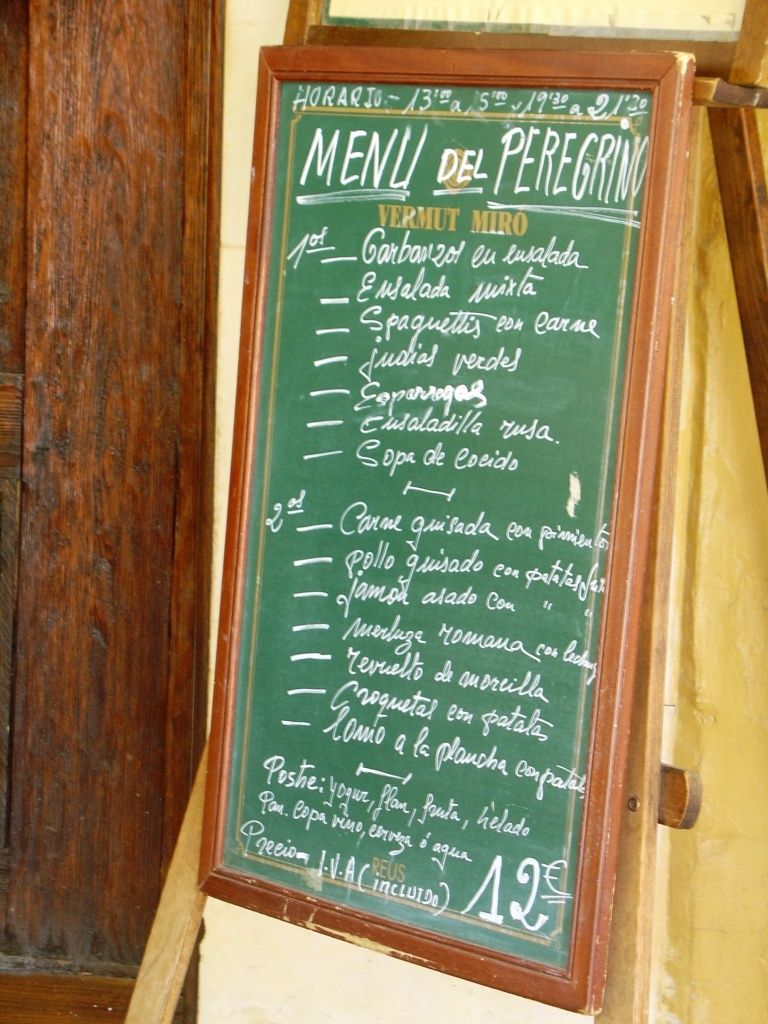 HORARIO - 13'00 a 15'00 y 19'30 a 21'30
MENU DEL PEREGRINO
VERMUT MIRÓ
1os — Garbanzos en ensalada
— Ensalada mixta
— Spaguettis con carne
— judias verdes
— Esparragos
— Ensaladilla rusa.
— Sopa de cocido
2os — Carne guisada con pimientos
— pollo guisado con patatas
— jamón asado con " "
— merluza romana con
— revuelto de morcilla
— Croquetas con patatas
— Lomo a la plancha con patatas
Postre: yogur, flan, fruta, helado
Pan. copa vino, cerveza ó agua
Precio - I.V.A (INCLUIDO) 12€
REUS